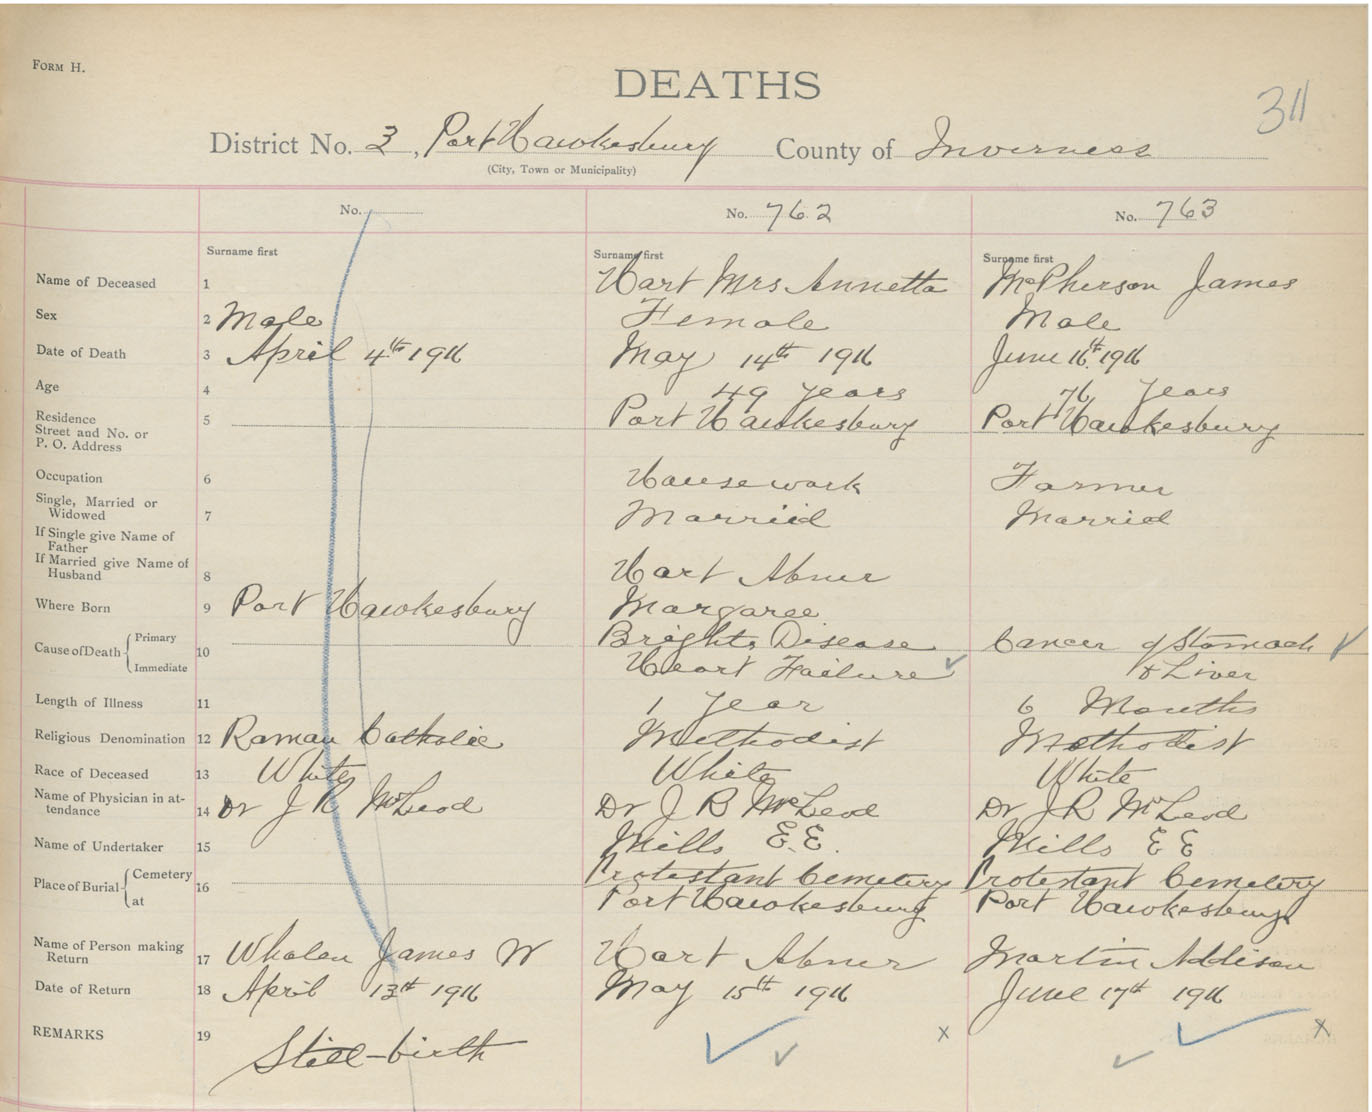 FORM H.
DEATHS
311
District No. 3, Port Hawkesbury County of Inverness
(City, Town or Municipality)
No. No. 762 No. 763
Surname first Surname first Surname first
Name of Deceased 1 Hart Mrs Annetta McPherson James
Sex 2 Male Female Male
Date of Death 3 April 4th 1916 May 14th 1916 June 16th 1916
Age 4 49 years 76 years
Residence
Street and No. or
P. O. Address 5 Port Hawkesbury Port Hawkesbury
Occupation 6 House work Farmer
Single, Married or
Widowed 7 Married Married
If Single give Name of
Father
If Married give Name of
Husband 8 Hart Abner
Where Born 9 Port Hawkesbury Margaree
Cause of Death 10 Primary Brights Disease Cancer of Stomach
Immediate Heart Failure & Liver
Length of Illness 11 1 year 6 Months
Religious Denomination 12 Roman Catholic Methodist Methodist
Race of Deceased 13 White White White
Name of Physician in at-
tendance 14 Dr J R McLeod Dr J R McLeod Dr J R McLeod
Name of Undertaker 15 Mills E.E. Mills E E
Place of Burial 16 Cemetery Protestant Cemetery Protestant Cemetery
at Port Hawkesbury Port Hawkesbury
Name of Person making
Return 17 Whalen James W Hart Abner Martin Addison
Date of Return 18 April 13th 1916 May 15th 1916 June 17th 1916
REMARKS 19 Still-birth x x